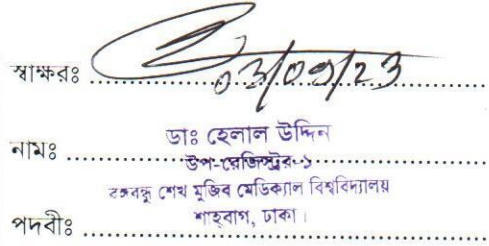 স্বাক্ষরঃ ........ 03/09/23
ডাঃ হেলাল উদ্দিন
নামঃ ........
উপ-রেজিস্ট্রার-১
বঙ্গবন্ধু শেখ মুজিব মেডিক্যাল বিশ্ববিদ্যালয়
শাহবাগ, ঢাকা।
পদবীঃ ........